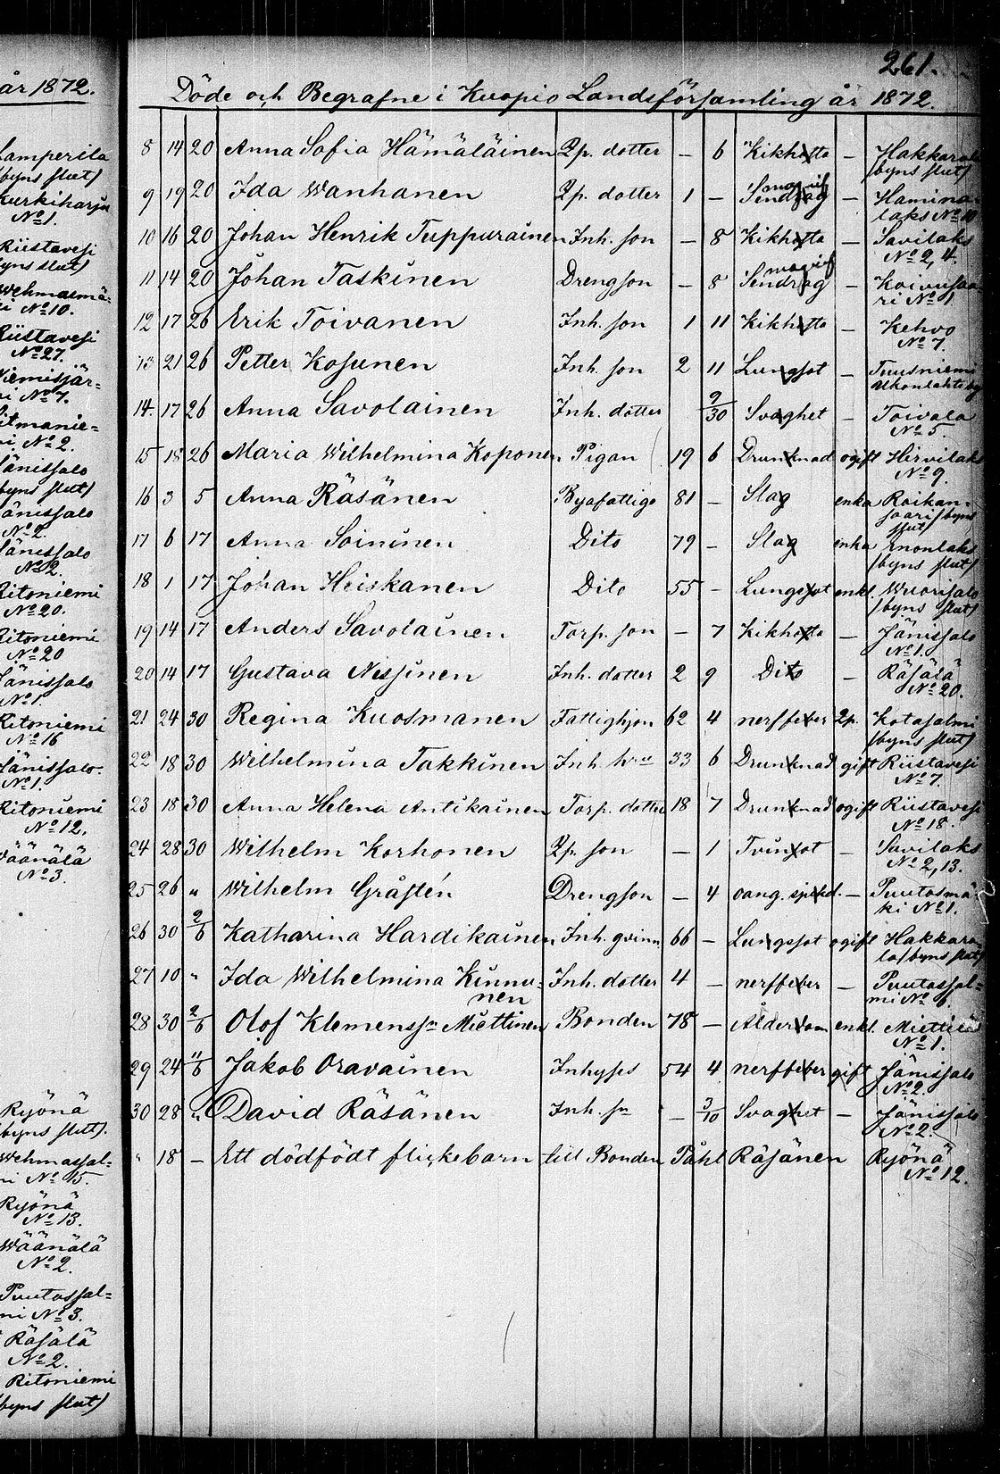 år 1872.
Lamperila
/byns slut/
Kurkiharju
No 1.
Riistavesi
/byns slut/
Wehmasmä-
ki No 10.
Riistavesi
No 27.
Niemisjär-
vi No 7.
No 2.
Jänissalo
/byns slut/
Jänissalo
No 2.
Jänissalo
No 2.
Ritoniemi
No 20.
Ritoniemi
No 20
Jänissalo
No 1.
Ritoniemi
No 16
Jänissalo.
No 1.
Ritoniemi
No 12.
Wäänälä
No 3.
Ryönä
/byns slut/.
Wehmassal-
mi No 15.
Ryönä
No 13.
Wäänälä
No 2.
Puutossal-
mi No 3.
Räsälä
No 2.
Ritoniemi
/byns slut/
261.
Döde och Begrafne i Kuopio Landsförsamling år 1872.
8 14 20 Anna Sofia Hämäläinen Zp. dotter — 6 Kikhosta — Hakkarala
/byns slut/
9 19 20 Ida Wanhanen Zp. dotter 1 — Sendrag magrif — Hamina-
laks No 10
10 16 20 Johan Henrik Tuppurainen Inh. son — 8 Kikhosta — Savilaks
No 2, 4.
11 14 20 Johan Taskinen Drengson — 8 Sendrag magrif — Koivusaa-
ri No 1
12 17 26 Erik Toivanen Inh. son 1 11 Kikhosta — Kehvo
No 7.
13 21 26 Petter Kosunen Inh. son 2 11 Lungsot — Tuusniemi
Ukonlahti by
14. 17 26 Anna Savolainen Inh. dotter 9/30 Svaghet — Toivala
No 5.
15 18 26 Maria Wilhelmina Koponen Pigan 19 6 Drunknad ogift Hirvilaks
No 9.
16 3 5 Anna Räsänen Byafattige 81 — Slag enka Roikan-
saari/byns
slut/
17 6 17 Anna Soininen Dito 79 — Slag enka Enonlaks
/byns slut/
18 1 17 Johan Heiskanen Dito 55 — Lungsot enkl. Wuorisalo
/byns slut/
19 14 17 Anders Savolainen Torp. son — 7 Kikhosta — Jänissalo
No 1.
20 14 17 Gustava Nissinen Inh. dotter 2 9 Dito — Räsälä
No 20.
21 24 30 Regina Kuosmanen Fattighjon 62 4 nerffeber Zp. Kotasalmi
/byns slut/
22 18 30 Wilhelmina Takkinen Inh. hru 33 6 Drunknad gift Riistavesi
No 7.
23 18 30 Anna Helena Antikainen Torp. dotter 18 7 Drunknad ogift Riistavesi
No 18.
24 28 30 Wilhelm Korhonen Zp. son — 1 Tvinsot — Savilaks
No 2, 13.
25 26 " Wilhelm Gråsten Drengson — 4 oang. sjukd. — Puutosmä-
ki No 1.
26 30 2/6 Katharina Hardikainen Inh. qvinn 66 — Lungsot ogift Hakkara-
la/byns slut/
27 10 " Ida Wilhelmina Kinnu-
nen Inh. dotter 4 — nerffeber — Puutossal-
mi No 6.
28 30 2/6 Olof Klemenssn Miettinen Bonden 78 — Ålderdom enkl. Miettilä
No 1.
29 24 11/6 Jakob Oravainen Inhyss 54 4 nerffeber gift Jänissalo
No 2.
30 28 " David Räsänen Inh. sn — 3/10 Svaghet — Jänissalo
No 2.
" 18 — Ett dödfödt flickebarn till Bonden Påhl Räsänen Ryönä
No 12.